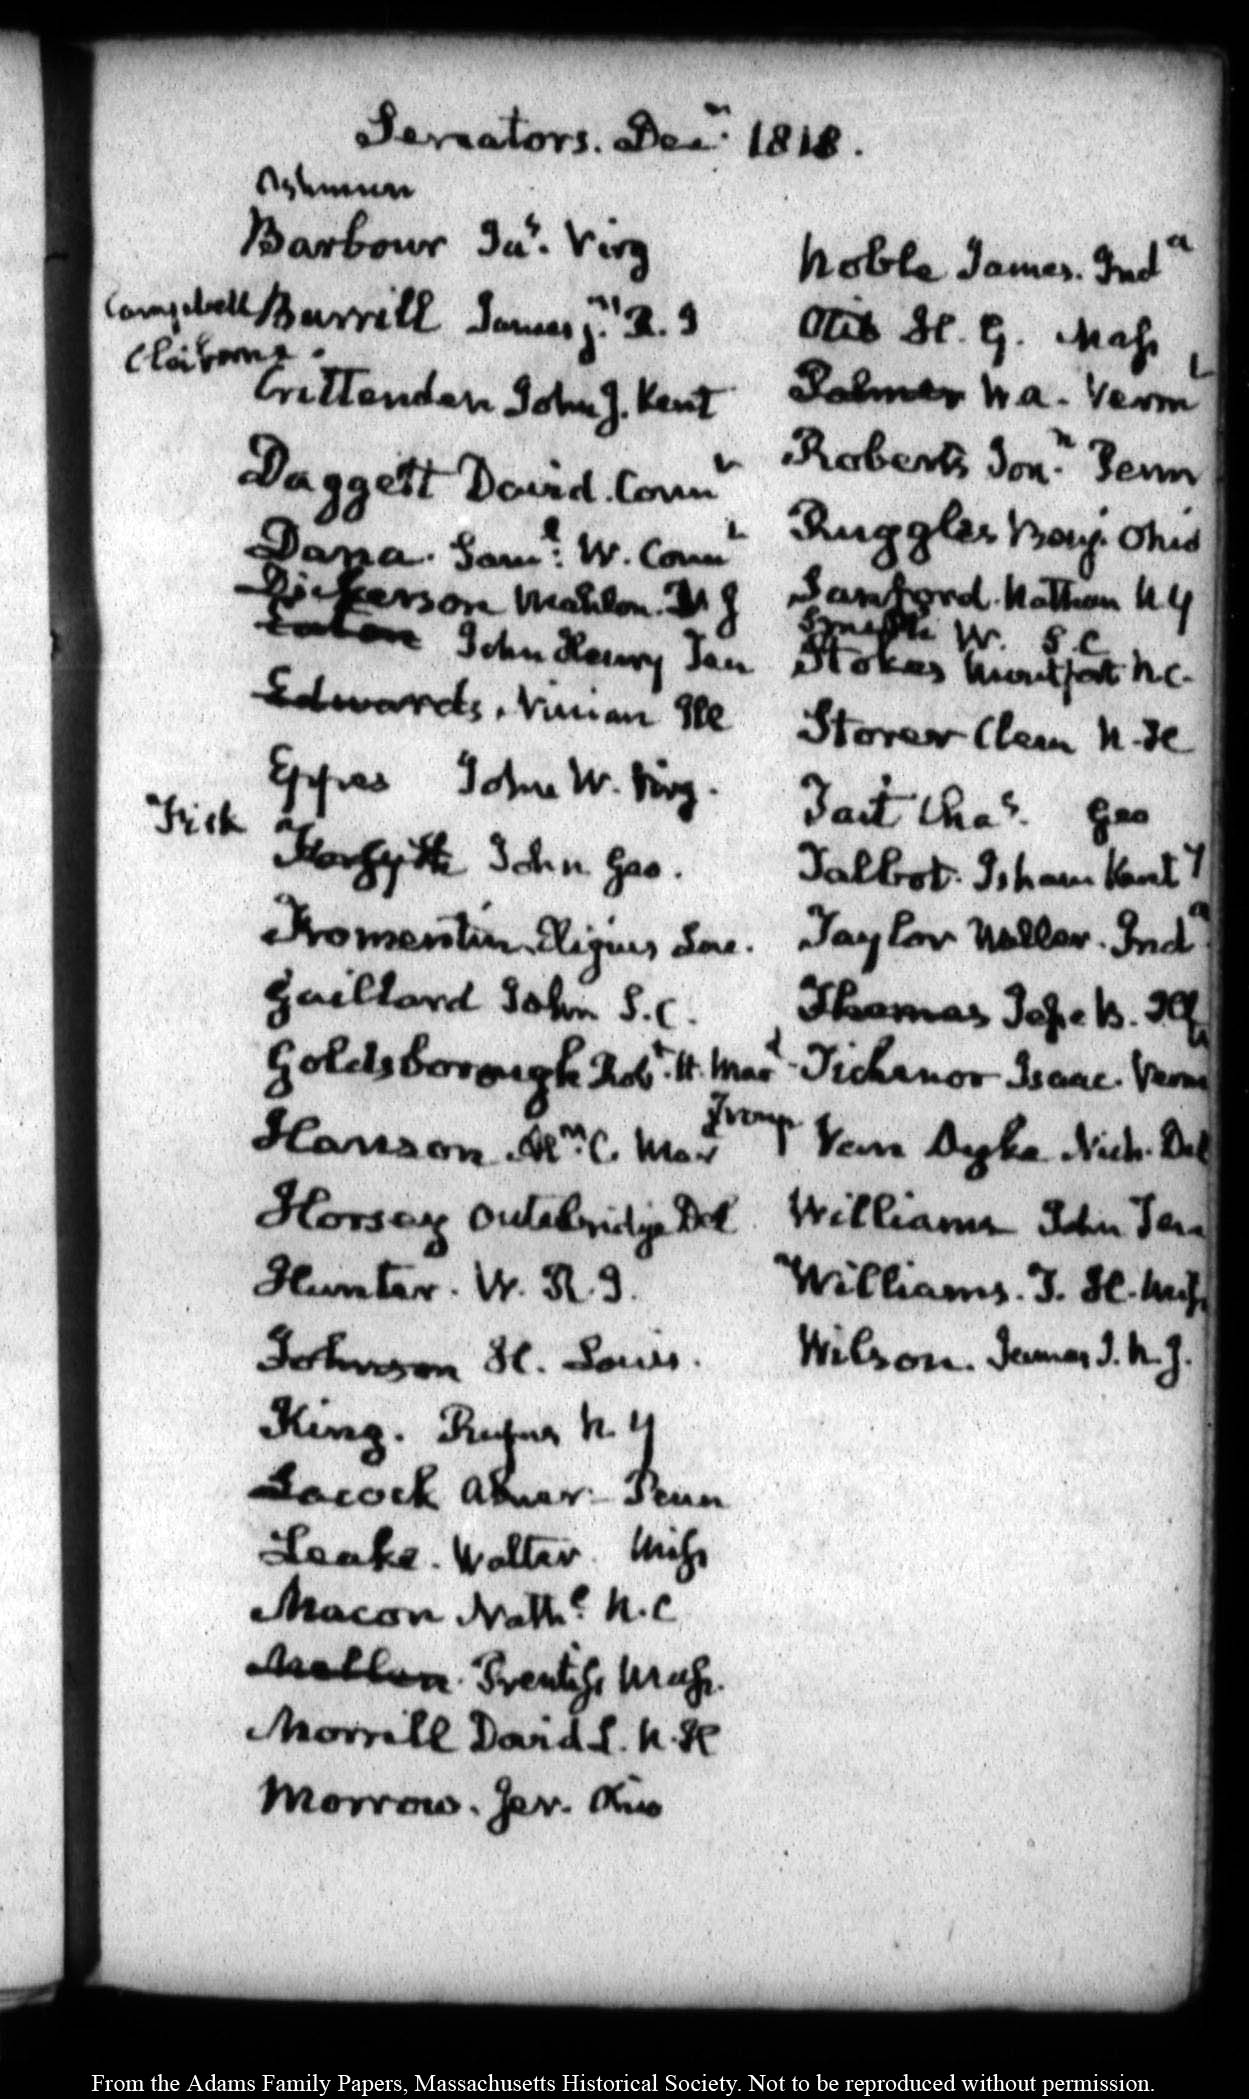 Senators. Decr. 1818.
Ashmun
Barbour Jas. Virg
Campbell
Burrill James jr. R. I
Claiborne.
Crittenden John J. Kent
Daggett David. Connt
Dana. Saml. W. Connt
Dickerson Mahlon. N J
Eaton John Henry Ten
Edwards, Ninian Ill
Eppes John W. Virg.
Fisk
Forsyth John Geo.
Fromentin Eligius Lou.
Gaillard John S. C.
Goldsborough Robt. H. Mard
Hanson A. C. Mar
Horsey Outerbridge Del
Hunter. W. R. I.
Johnson H. Louis.
King. Rufus N. Y
Lacock Abner- Penn
Leake. Walter. Miss
Macon Nathl. N. C
Mellen. Prentiss Mass.
Morrill David L. N. H
Morrow. Jer. Ohio
Noble James. Inda
Otis H. G. Mass
Palmer Wm. Vermt
Roberts Jonn. Penn
Ruggles Benj. Ohio
Sanford. Nathan N Y
Smith W. S. C
Stokes Montfort N. C.
Storer Clem N. H
Tait Chas. Geo
Talbot. Isham Kenty
Taylor Waller. Inda.
Thomas Jesse B. Ill
Tichenor Isaac. Verm
Trimp
Van Dyke Nich. Del
Williams John Ten
Williams. T. H. Miss
Wilson. James J. N. J.
From the Adams Family Papers, Massachusetts Historical Society. Not to be reproduced without permission.